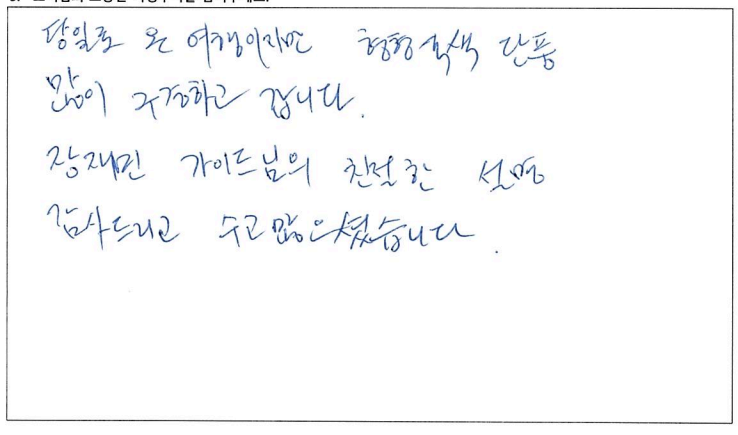 당일로 온 여행이지만 형형색색 단풍
많이 구경하고 갑니다.
장재민 가이드님의 친절한 설명
감사드리고 수고 많으셨습니다.